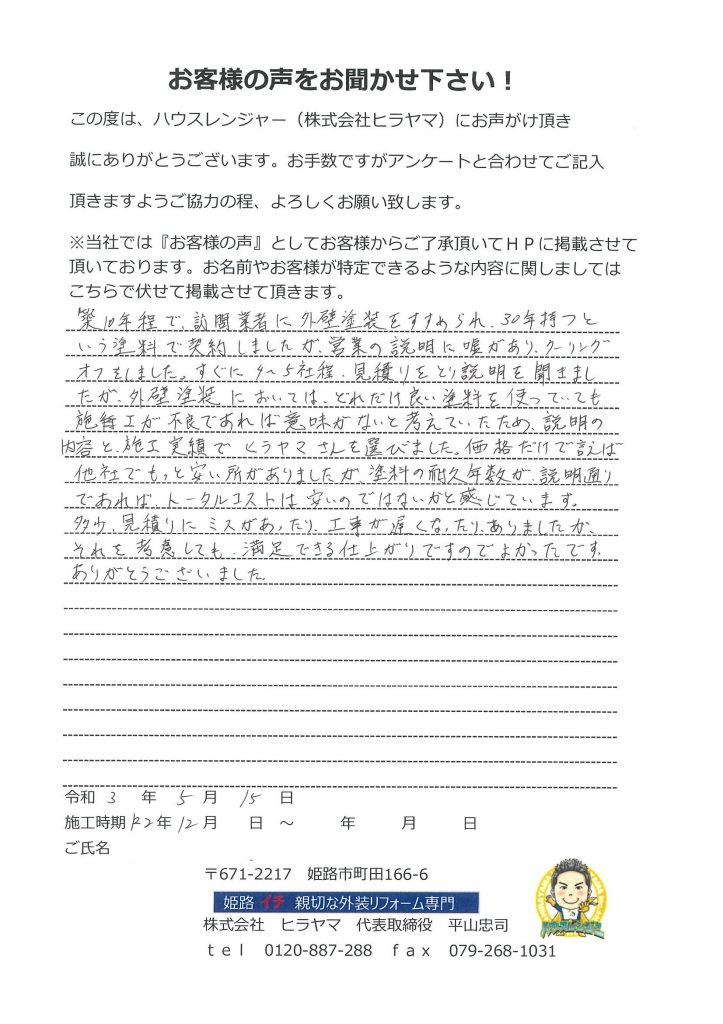 お客様の声をお聞かせ下さい！
この度は、ハウスレンジャー（株式会社ヒラヤマ）にお声がけ頂き
誠にありがとうございます。お手数ですがアンケートと合わせてご記入
頂きますようご協力の程、よろしくお願い致します。
※当社では『お客様の声』としてお客様からご了承頂いてＨＰに掲載させて
頂いております。お名前やお客様が特定できるような内容に関しましては
こちらで伏せて掲載させて頂きます。
築10年程で、訪問業者に外壁塗装をすすめられ、30年持つと
いう塗料で契約しましたが、営業の説明に嘘があり、クーリング
オフをしました。すぐに4〜5社程、見積りをとり説明を聞きまし
たが、外壁塗装においては、どれだけ良い塗料を使っていても
施工が不良であれば意味がないと考えていたため、説明の
内容と、施工実績でヒラヤマさんを選びました。価格だけで言えば
他社でもっと安い所がありましたが、塗料の耐久年数が、説明通り
であれば、トータルコストは安いのではないかと感じています。
多少、見積りにミスがあったり、工事が遅くなったり、ありましたが、
それを考慮しても、満足できる仕上がりですのでよかったです。
ありがとうございました。
令和 3 年 5 月 15 日
施工時期 R2 年 12 月 日 〜 年 月 日
ご氏名
〒671-2217 姫路市町田166-6
姫路 イチ 親切な外装リフォーム専門
株式会社 ヒラヤマ 代表取締役 平山忠司
ｔｅｌ 0120-887-288 ｆａｘ 079-268-1031
ハウスレンジャー